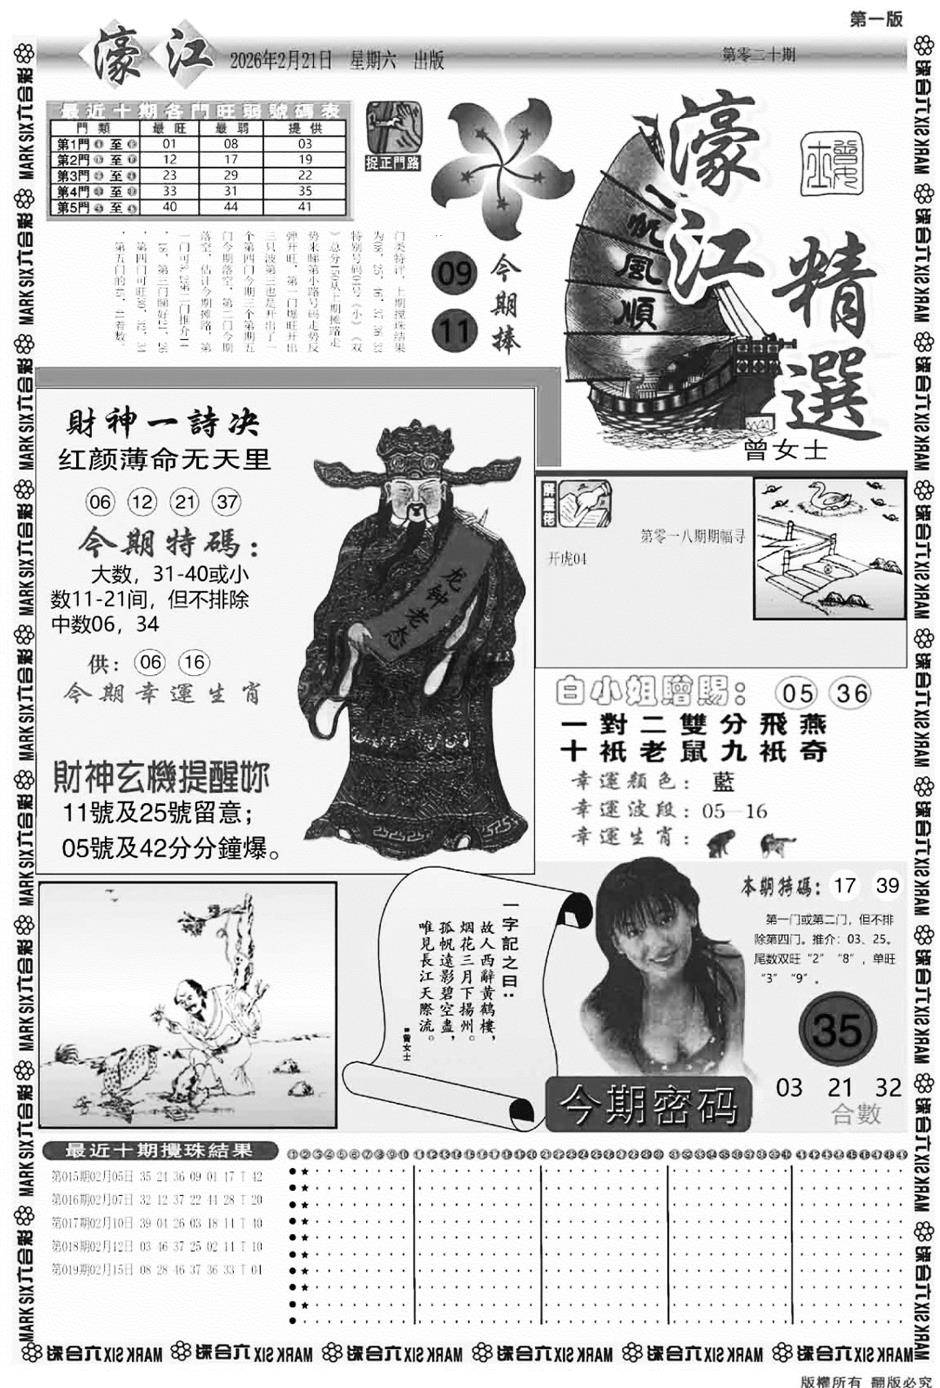 第一版
濠江
2026年2月21日 星期六 出版
第零二十期
最近十期各門旺弱號碼表
門類 最旺 最弱 提供
第1門 至 01 08 03
第2門 至 12 17 19
第3門 至 23 29 22
第4門 至 33 31 35
第5門 至 40 44 41
捉正門路
今期捧
09
11
一帆風順
濠江
精選
曾女士
財神一詩决
红颜薄命无天里
06 12 21 37
今期特碼：
大数，31-40或小
数11-21间，但不排除
中数06，34
供： 06 16
今期幸運生肖
財神玄機提醒妳
11號及25號留意；
05號及42分分鐘爆。
龙钟老态
第零一八期期幅寻
开虎04
白小姐贈賜： 05 36
一對二雙分飛燕
十祇老鼠九祇奇
幸運顏色：藍
幸運波段：05—16
幸運生肖：
一字記之曰：
故人西辭黄鶴樓，
烟花三月下揚州。
孤帆遠影碧空盡，
唯見長江天際流。
曾女士
本期特碼： 17 39
第一门或第二门，但不排
除第四门。推介：03、25。
尾数双旺“2”“8”，单旺
“3”“9”。
35
今期密码
03 21 32
合數
最近十期攪珠結果
第015期02月05日 35 24 36 09 01 47 T 42
第016期02月07日 32 12 37 22 44 28 T 20
第017期02月10日 39 04 26 03 18 14 T 40
第018期02月12日 03 46 37 25 02 14 T 10
第019期02月15日 08 28 46 37 36 33 T 04
六合彩 MARK SIX
版權所有 翻版必究